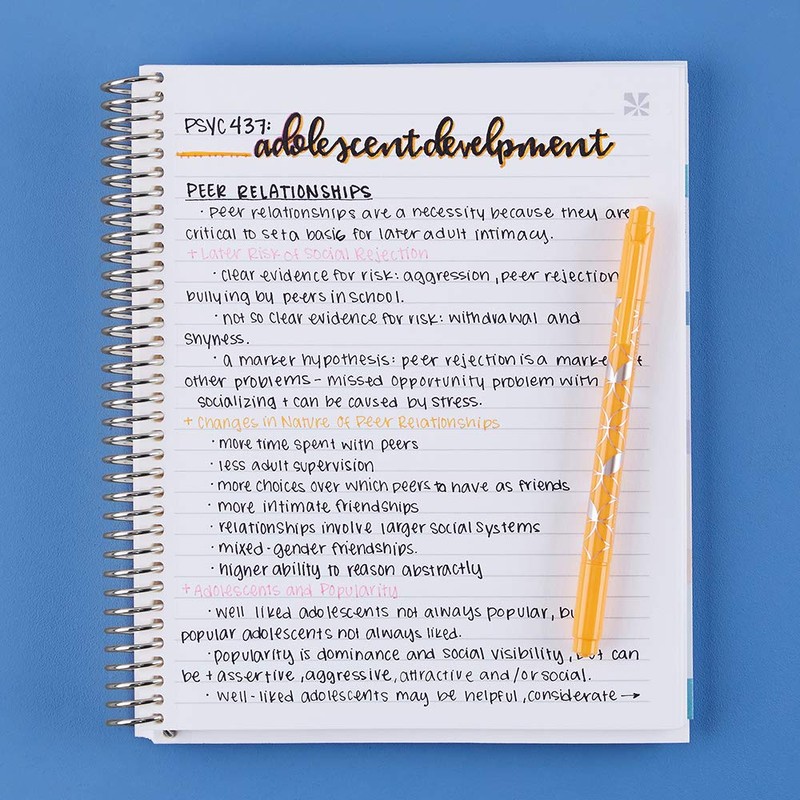 PSYC 437: adolescent develpment
PEER RELATIONSHIPS
· Peer relationships are a necessity because they are
critical to set a basis for later adult intimacy.
+ Later Risk of Social Rejection
· clear evidence for risk: aggression, peer rejection
bullying by peers in school.
· not so clear evidence for risk: withdrawal and
shyness.
· a marker hypothesis: peer rejection is a
other problems - missed opportunity problem with
socializing + can be caused by stress.
+ Changes in Nature of Peer Relationships
· more time spent with peers
· less adult supervision
· more choices over which peers to have as friends
· more intimate friendships
· relationships involve larger social systems
· mixed-gender friendships.
· higher ability to reason abstractly
+ Adolescents and Popularity
· well liked adolescents not always popular,
popular adolescents not always liked.
· popularity is dominance and social visibility, but can
be + assertive, aggressive, attractive and/or social.
· well-liked adolescents may be helpful, considerate →